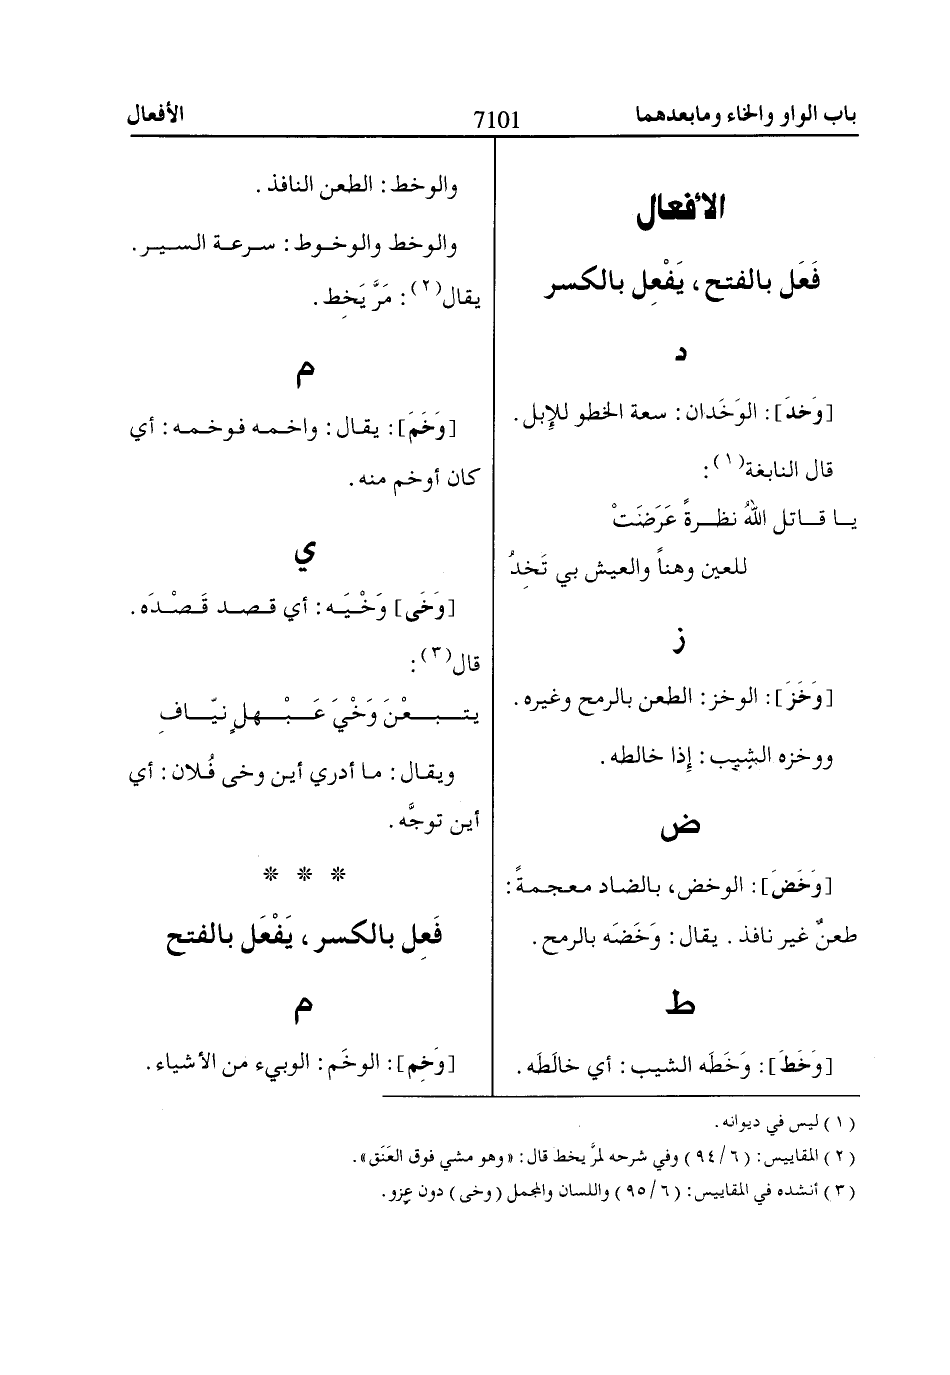 باب الواو والخاء ومابعدهما
7101
الأفعال
الأفعال
فَعَل بالفتح، يَفْعِل بالكسر
د
[وَخدَ]: الوَخَدان: سعة الخطو للإبل.
قال النابغة(١):
يـا قـاتل اللهُ نظـرةً عَرَضَتْ
للعين وهناً والعيش بي تَخِدُ
ز
[وَخَزَ]: الوخز: الطعن بالرمح وغيره.
ووخزه الشيب: إذا خالطه.
ض
[وَخَضَ]: الوخض، بالضاد معجمةً:
طعنٌ غير نافذ. يقال: وَخَضَه بالرمح.
ط
[وَخَطَ]: وَخَطَه الشيب: أي خالَطَه.
والوخط: الطعن النافذ.
والوخط والوخوط: سرعة السير.
يقال(٢): مَرَّ يَخِط.
م
[وَخَمَ]: يقال: واخمه فوخمه: أي
كان أوخم منه.
ي
[وَخَى] وَخْيَه: أي قصد قَصْدَه.
قال(٣):
يتبعْنَ وَخْيَ عَبْهلٍ نيّافِ
ويقال: ما أدري أين وخى فُلان: أي
أين توجَّه.
* * *
فَعِل بالكسر، يَفْعَل بالفتح
م
[وَخِم]: الوخَم: الوبيء من الأشياء.
(١) ليس في ديوانه.
(٢) المقاييس: (٩٤/٦) وفي شرحه لمرَّ يخط قال: «وهو مشي فوق العَنَق».
(٣) أنشده في المقاييس: (٩٥/٦) واللسان والمجمل (وخى) دون عزو.